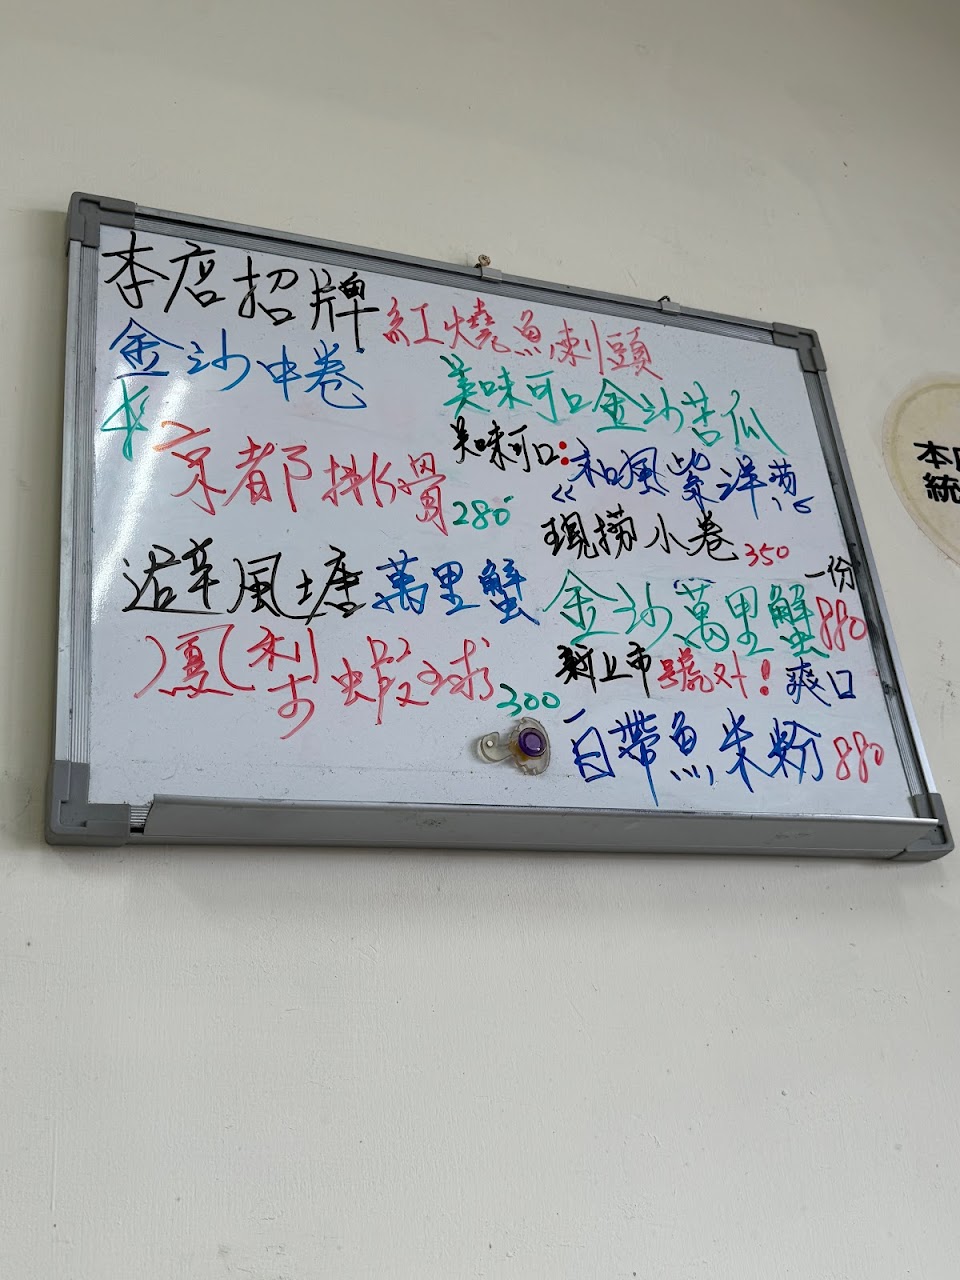 本店招牌
紅燒魚刺頭
金沙中卷
美味可口金沙苦瓜
京都排骨280
美味可口:和風紫洋蔥
現撈小卷350
避風塘萬里蟹
金沙萬里蟹一份880
鳳梨蝦球300
新上市號外!爽口
白帶魚米粉880
本
統